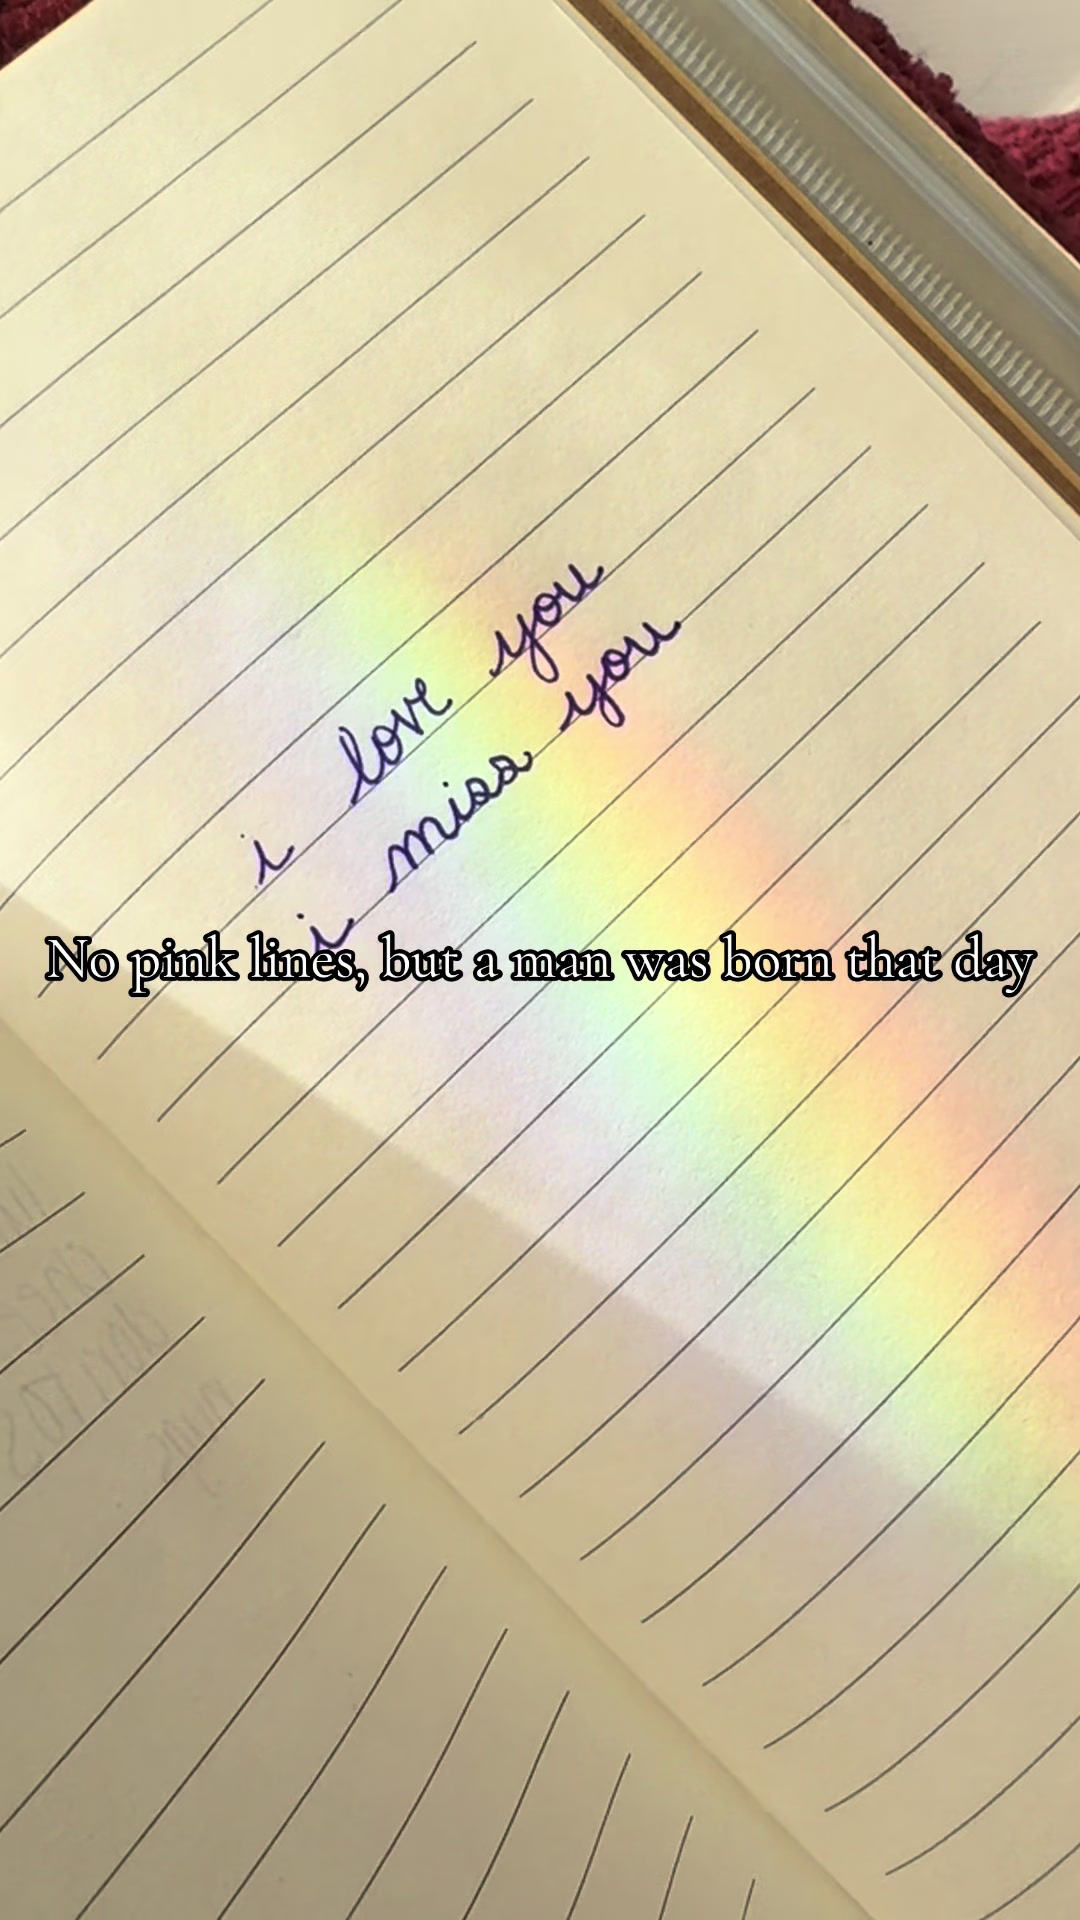 i love you
i miss you
No pink lines, but a man was born that day